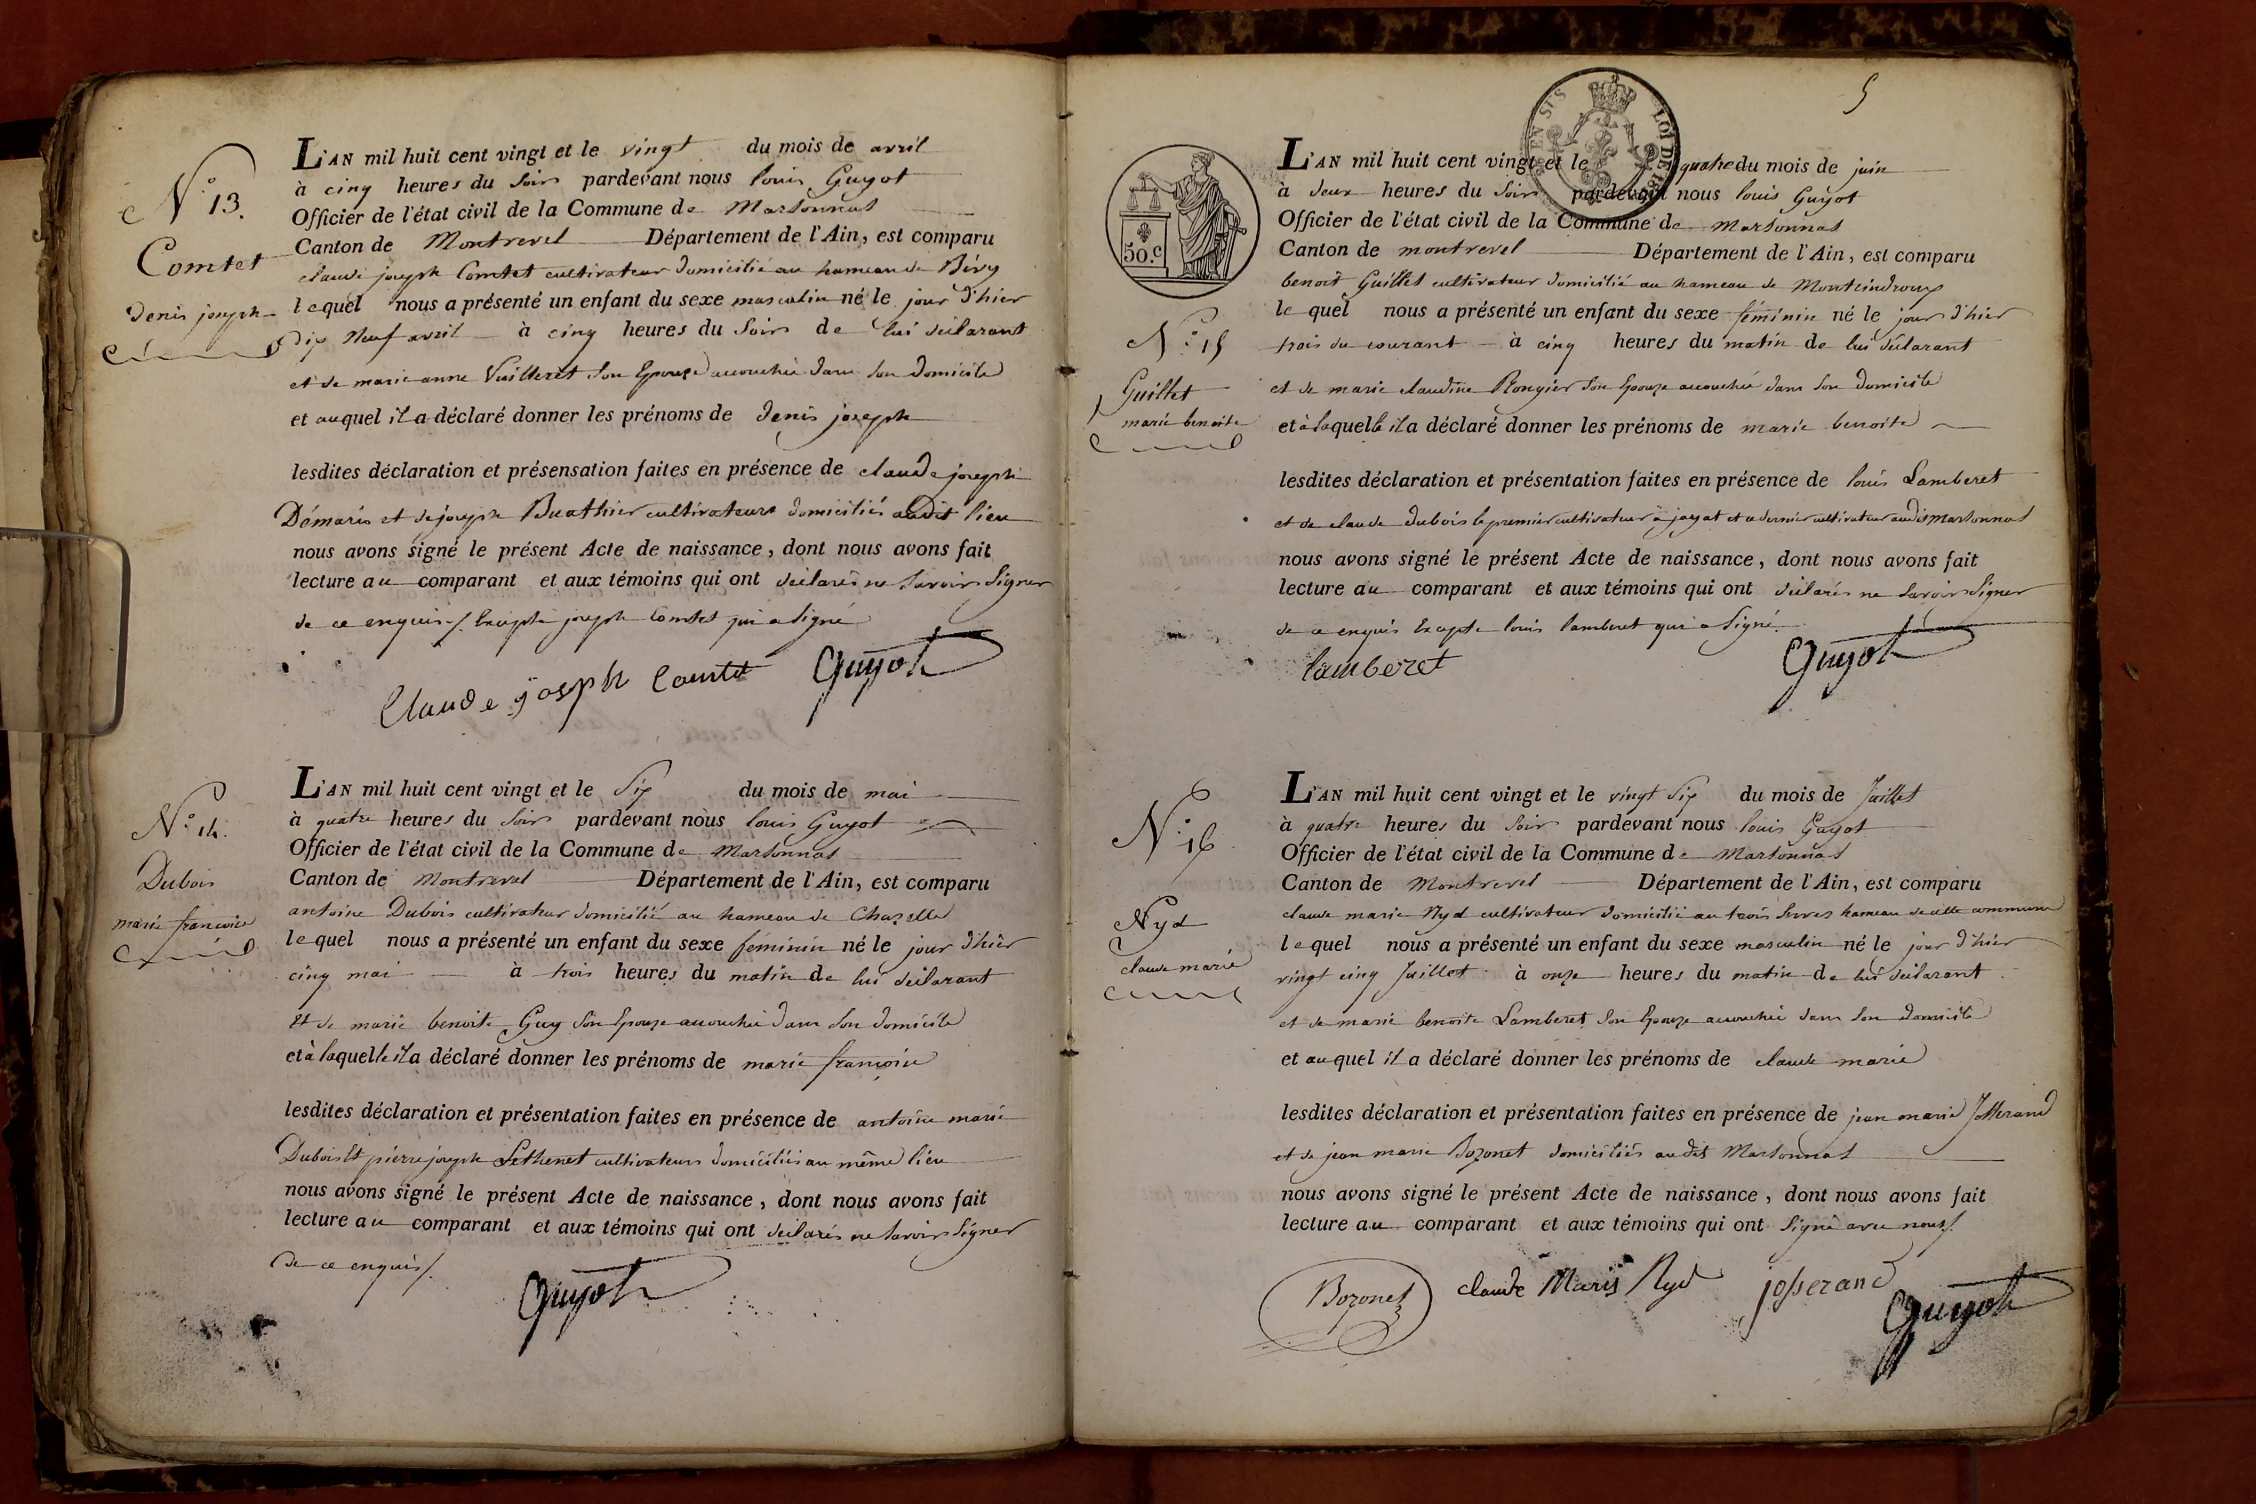 N.° 13.
Comtet
denis joseph
L'AN mil huit cent vingt et le vingt du mois de avril
à cinq heures du soir pardevant nous louis Guyot
Officier de l'état civil de la Commune de Marsonnas
Canton de Montrevel Département de l'Ain, est comparu
claude joseph Comtet cultivateur domicilié au hameau de Bévy
lequel nous a présenté un enfant du sexe masculin né le jour d'hier
dix neuf avril à cinq heures du soir de lui déclarant
et de marie anne Vuilleret son Epouze accouchée dans son domicile
et auquel il a déclaré donner les prénoms de denis joseph
lesdites déclaration et présensation faites en présence de claude joseph
Démaris et de joseph Buathier cultivateurs domiciliés audit lieu
nous avons signé le présent Acte de naissance, dont nous avons fait
lecture au comparant et aux témoins qui ont déclarés ne savoir signer
de ce enquis /. Excepté joseph Comtet qui a signé
Claude joseph Comtet Guyot
N.° 14.
Dubois
marie francoise
L'AN mil huit cent vingt et le six du mois de mai
à quatre heures du soir pardevant nous louis Guyot
Officier de l'état civil de la Commune de Marsonnas
Canton de Montrevel Département de l'Ain, est comparu
antoine Dubois cultivateur domicilié au hameau de Chazelle
lequel nous a présenté un enfant du sexe féminin né le jour d'hier
cinq mai à trois heures du matin de lui déclarant
Et de marie benoite Guy son Epouze accouchée dans son domicile
et à laquelle il a déclaré donner les prénoms de marie françoise
lesdites déclaration et présentation faites en présence de antoine marie
Dubois Et pierre joseph Sethenet cultivateurs domiciliés au même lieu
nous avons signé le présent Acte de naissance, dont nous avons fait
lecture au comparant et aux témoins qui ont déclarés ne savoir signer
de ce enquis /.
Guyot
5
50.c
LOI DE 18
N.° 15
Guillet
marie benoite
L'AN mil huit cent vingt et le quatre du mois de juin
à deux heures du soir pardevant nous louis Guyot
Officier de l'état civil de la Commune de Marsonnas
Canton de montrevel Département de l'Ain, est comparu
benoit Guillet cultivateur domicilié au hameau de Montcindroux
lequel nous a présenté un enfant du sexe féminin né le jour d'hier
trois du courant à cinq heures du matin de lui déclarant
et de marie claudine Rongier son Epouze accouchée dans son domicile
et à laquelle il a déclaré donner les prénoms de marie benoite
lesdites déclaration et présentation faites en présence de louis Lamberet
et de claude dubois le premier cultivateur à jayat et ce dernier cultivateur audit Marsonnas
nous avons signé le présent Acte de naissance, dont nous avons fait
lecture au comparant et aux témoins qui ont déclarés ne savoir signer
de ce enquis Excepté louis lamberet qui a signé.
lamberet Guyot
N.° 16
Nyd
claude marie
L'AN mil huit cent vingt et le vingt six du mois de Juillet
à quatre heures du soir pardevant nous louis Guyot
Officier de l'état civil de la Commune de Marsonnas
Canton de Montrevel Département de l'Ain, est comparu
claude marie Nyd cultivateur domicilié au trois serves hameau de cette commune
lequel nous a présenté un enfant du sexe masculin né le jour d'hier
vingt cinq Juillet à onze heures du matin de lui déclarant
et de marie benoite Lamberet son Epouze accouchée dans son domicile
et auquel il a déclaré donner les prénoms de claude marie
lesdites déclaration et présentation faites en présence de jean marie Josserand
et de jean marie Bozonet domiciliés audit Marsonnas
nous avons signé le présent Acte de naissance, dont nous avons fait
lecture au comparant et aux témoins qui ont signé avec nous /.
Bozonet claude Marie Nyd josserand Guyot